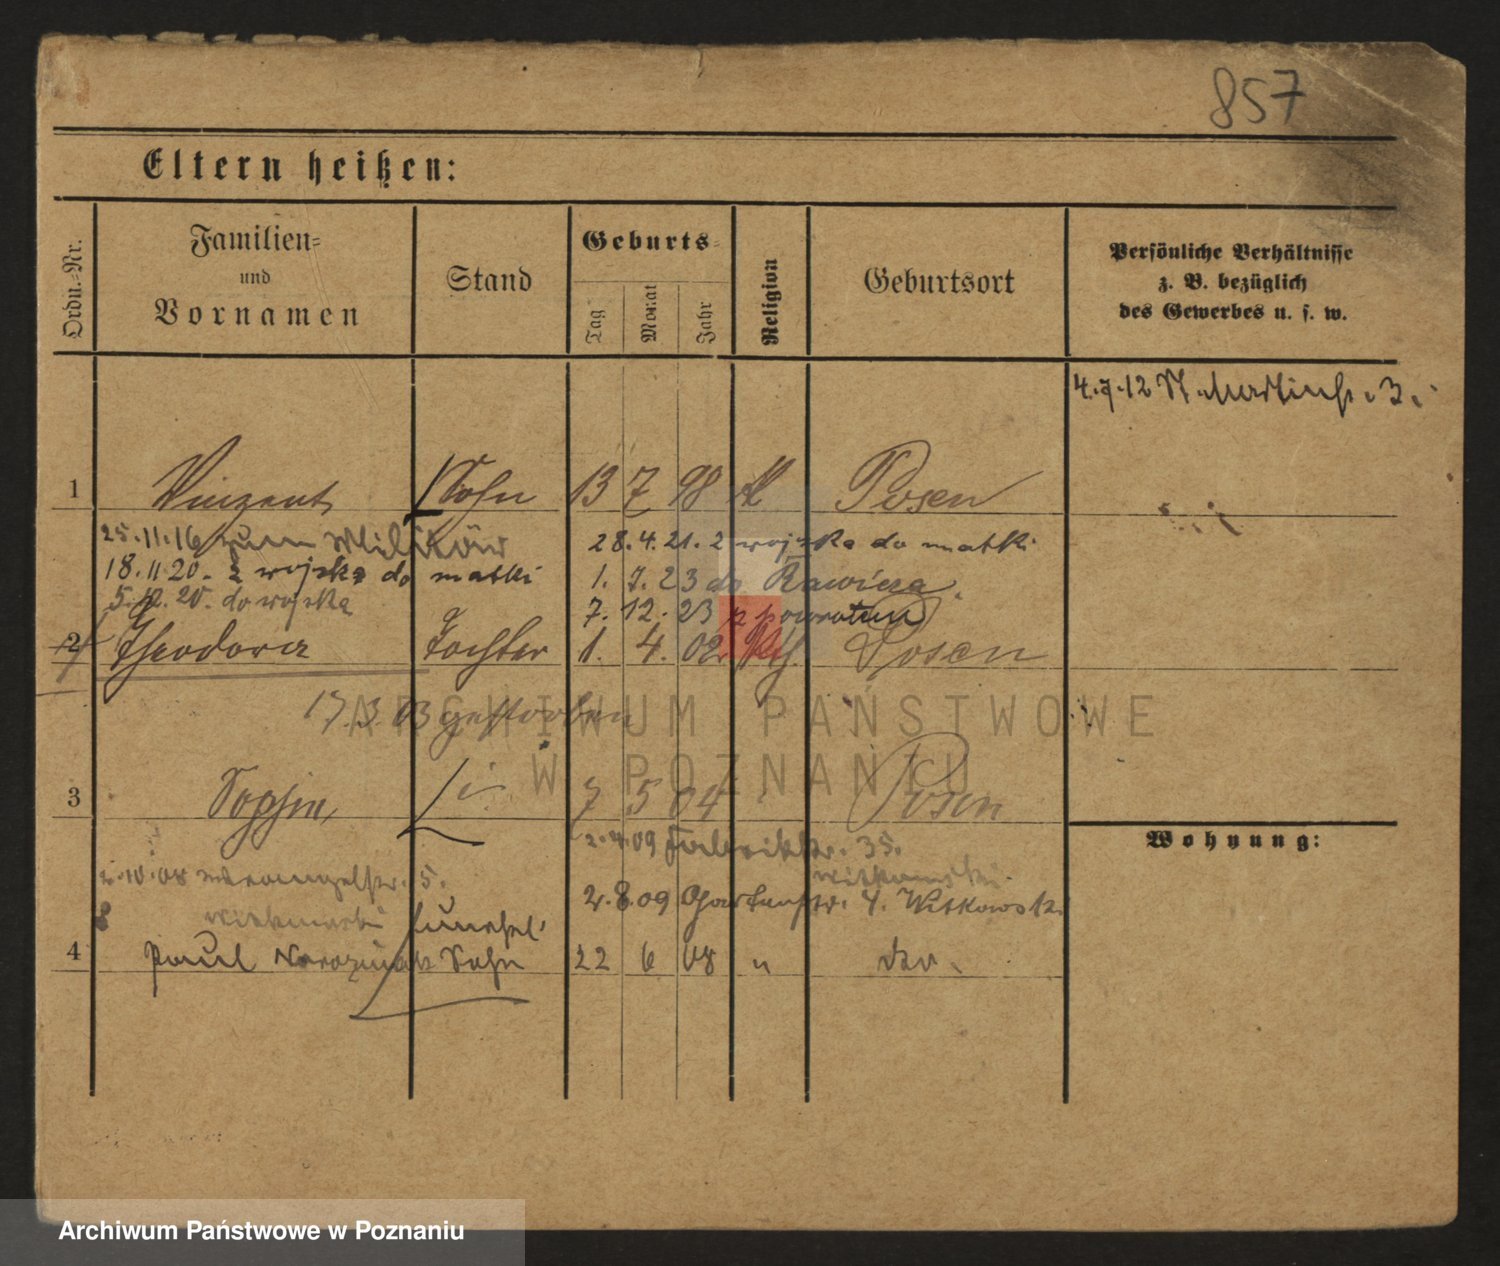 857
Eltern heißen:
Ordn.-Nr.
Familien-
und
Vornamen
Stand
Geburts-
Tag
Monat
Jahr
Religion
Geburtsort
Persönliche Verhältnisse
z. B. bezüglich
des Gewerbes u. s. w.
4.7.12 St. Martinstr. 3.
1 Vinzent Sohn 13 7 98 k Posen
25.11.16 zum Militär
28.4.21. z wojska do matki
18.11.20. z wojska do matki
1. 7. 23 do Rawicza
5.12.20. do wojska
7. 12. 23 z powrotem
2 Theodora Tochter 1. 4. 02 kth. Posen
17.3.03 gestorben
ARCHIWUM PAŃSTWOWE
W POZNANIU
3 Sophia 7 5 04 Posen
2.4.09 Fabrikstr. 35.
Wohnung:
2.10.08 Wrangelstr. 5.
Witkowski
2.8.09 Gartenstr. 4. Witkowski
unehel.
4 Paul Sohn 22 6 08 " do.
Archiwum Państwowe w Poznaniu